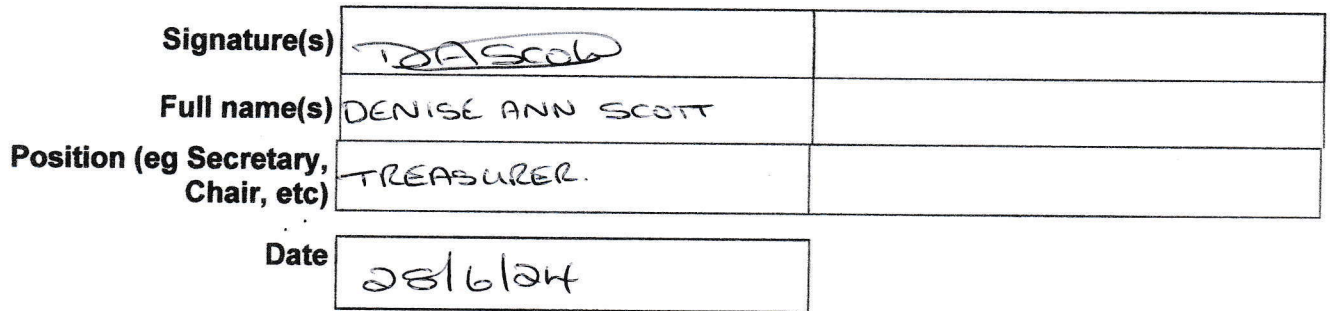 Signature(s) DAScott
Full name(s) DENISE ANN SCOTT
Position (eg Secretary,
Chair, etc) TREASURER.
Date 28/6/24